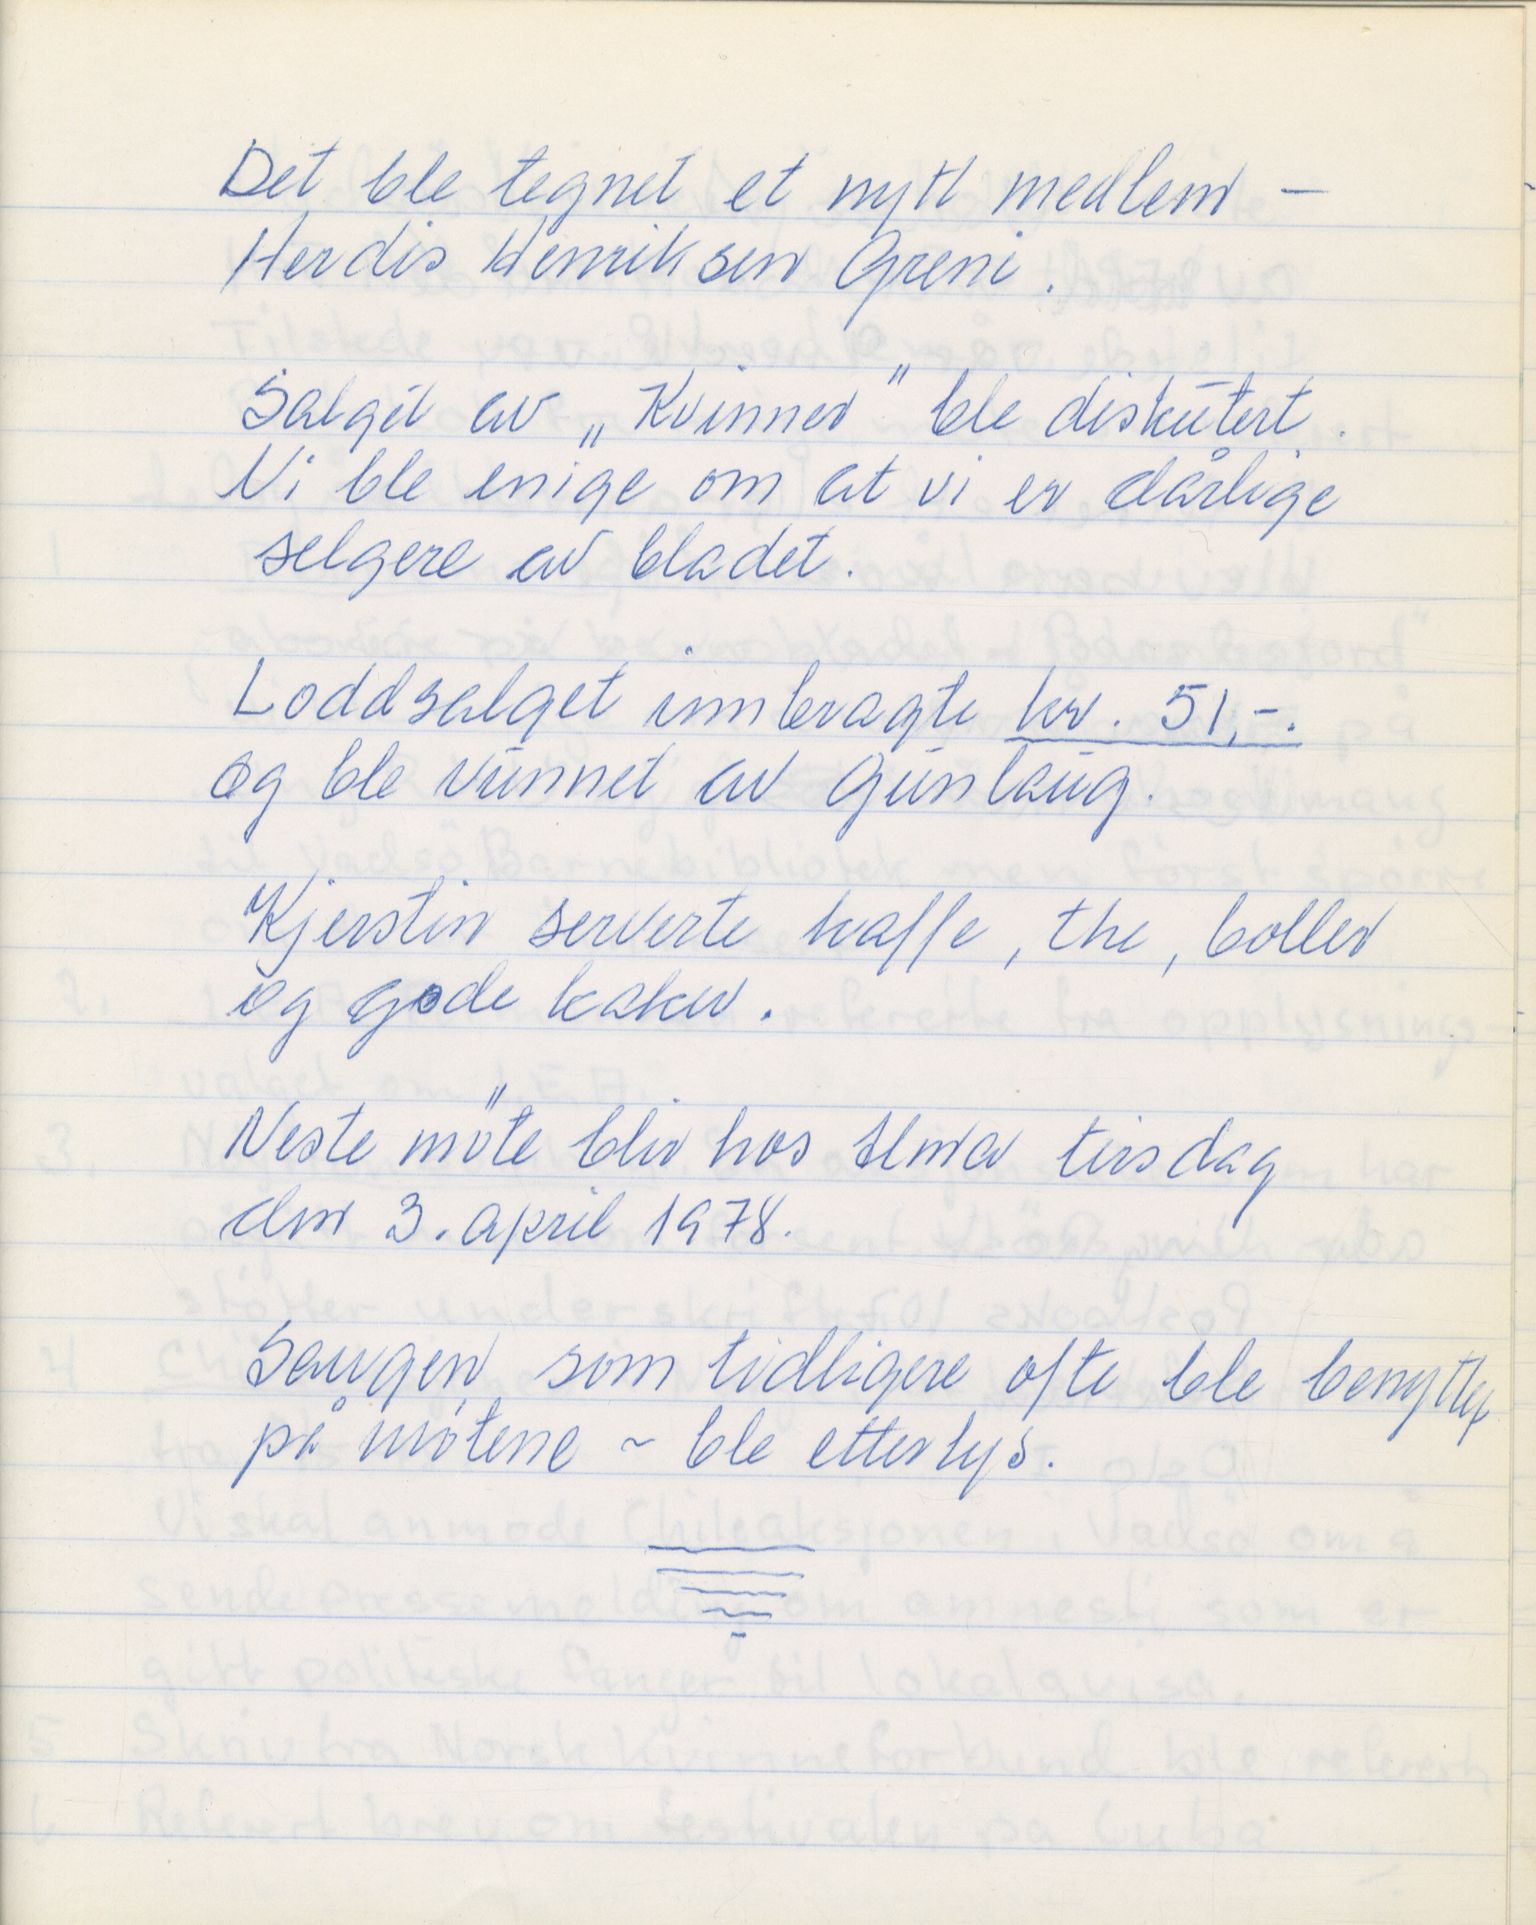 Det ble tegnet et nytt medlem –
Herdis Henriksen Greni.
Salget av „Kvinner" ble diskutert.
Vi ble enige om at vi er dårlige
selgere av bladet.
Loddsalget innbragte kr. 51,-.
og ble vunnet av Gunlaug.
Kjerstin serverte kaffe, the, boller
og gode kaker.
Neste möte blir hos Alma tirsdag
den 3. april 1978.
Sangen, som tidligere ofte ble benyttet
på møtene ~ ble etterlys.